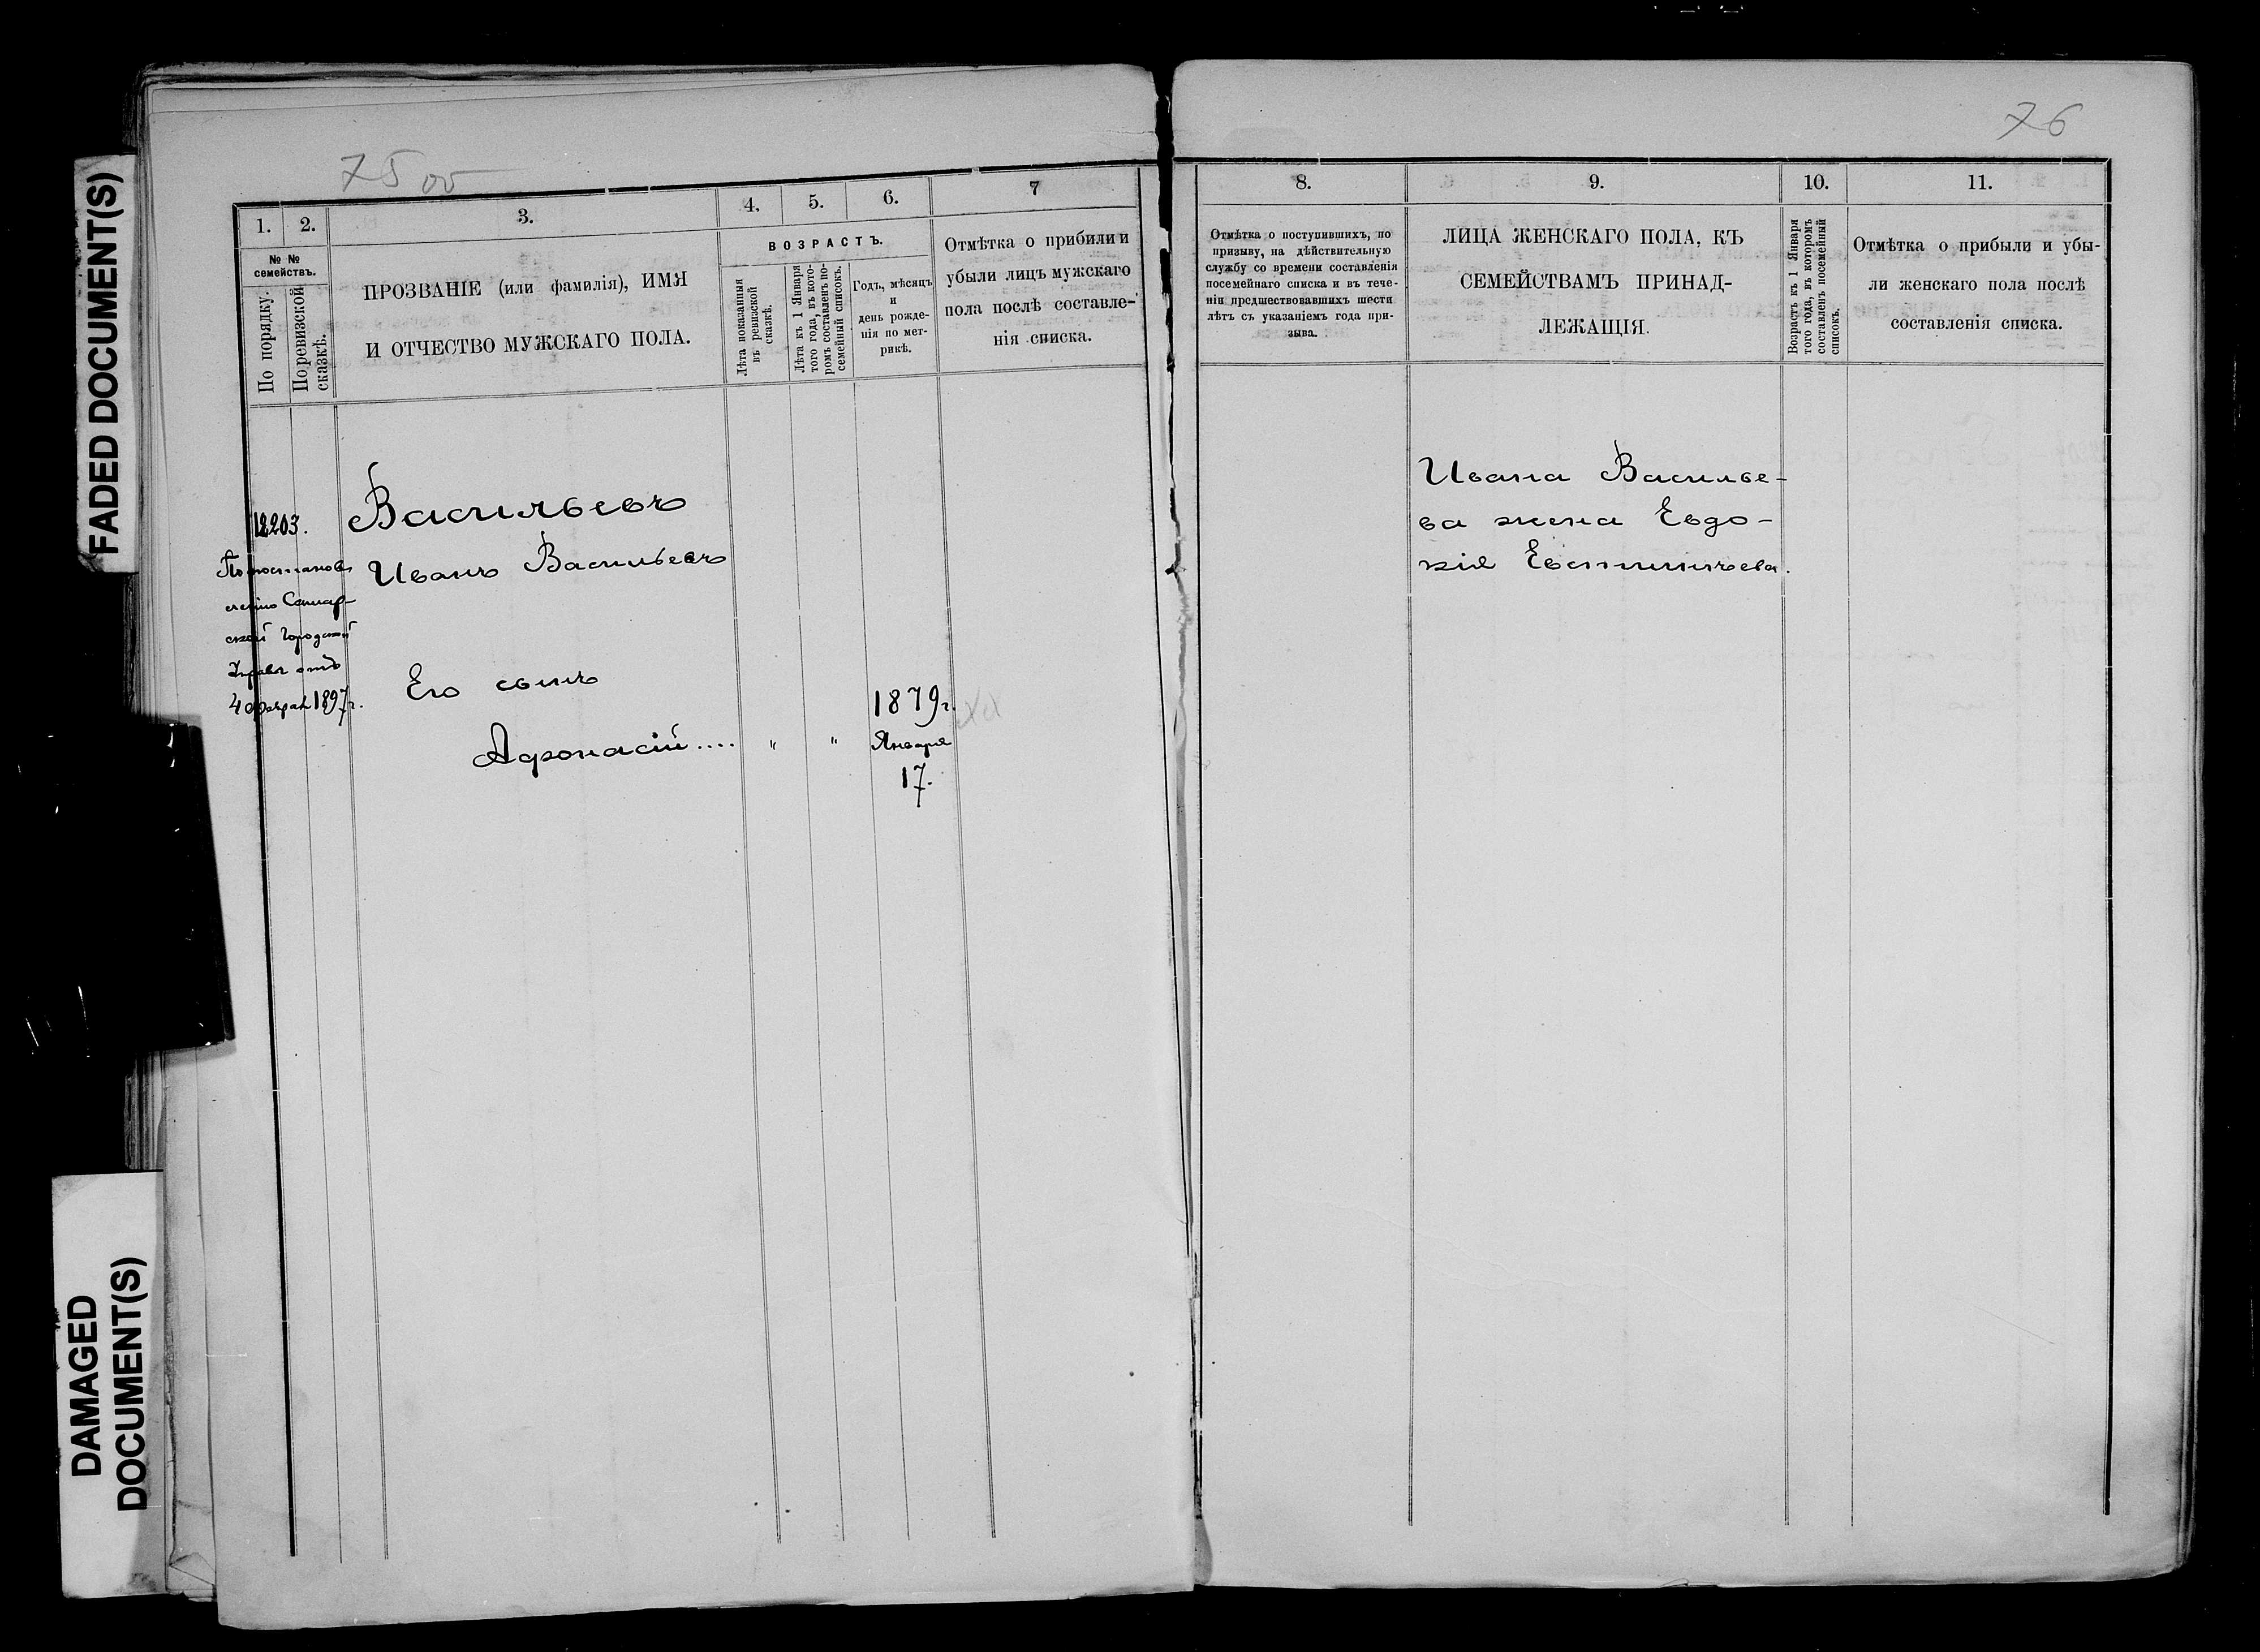 FADED DOCUMENT(S)
DAMAGED
DOCUMENT(S)
75 об
1. 2. 3. 4. 5. 6. 7
№ №
семействъ.
По порядку.
По ревизской
сказкѣ.
ПРОЗВАНІЕ (или фамилія), ИМЯ
И ОТЧЕСТВО МУЖСКАГО ПОЛА.
ВОЗРАСТЪ.
Лѣта показанныя
въ ревизской
сказкѣ.
Лѣта къ 1 Января
того года, въ кото-
ромъ составленъ по-
семейный списокъ.
Годъ, мѣсяцъ
и
день рожде-
нія по мет-
рикѣ.
Отмѣтка о прибыли и
убыли лицъ мужскаго
пола послѣ составле-
нія списка.
12203.
По постанов
ленію Самар-
ской Городской
Управы отъ
4 февраля 1897 г.
Васильевъ
Иванъ Васильевъ
Его сынъ
Афонасій.... " "
1879 г.
Января
17.
76
8. 9. 10. 11.
Отмѣтка о поступившихъ, по
призыву, на дѣйствительную
службу со времени составленія
посемейнаго списка и въ тече-
ніи предшествовавшихъ шести
лѣтъ съ указаніемъ года при-
зыва.
ЛИЦА ЖЕНСКАГО ПОЛА, КЪ
СЕМЕЙСТВАМЪ ПРИНАД-
ЛЕЖАЩІЯ.
Возрастъ къ 1 Января
того года, въ которомъ
составленъ посемейный
списокъ.
Отмѣтка о прибыли и убы-
ли женскаго пола послѣ
составленія списка.
Ивана Василье-
ва жена Евдо-
кія